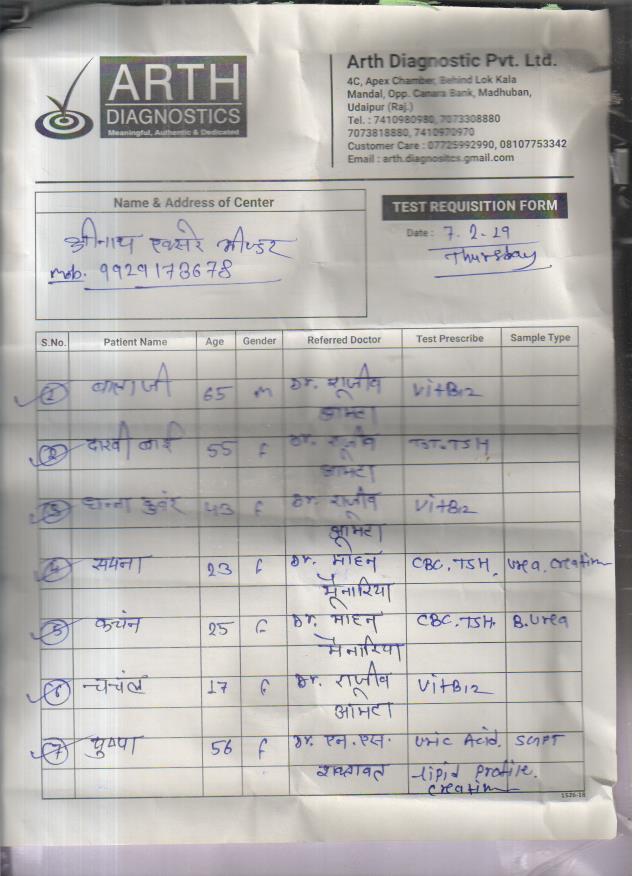 ARTH
DIAGNOSTICS
Meaningful, Authentic & Dedicated
Arth Diagnostic Pvt. Ltd.
4C, Apex Chamber, Behind Lok Kala
Mandal, Opp. Canara Bank, Madhuban,
Udaipur (Raj.)
Tel. : 7410980980, 7073308880
7073818880, 7410970970
Customer Care : 07725992990, 08107753342
Email : arth.diagnositcs.gmail.com
Name & Address of Center
श्रीनाथ एक्सरे भीण्डर
mob. 9929173678
TEST REQUISITION FORM
Date : 7.2.19
Thursday
S.No. Patient Name Age Gender Referred Doctor Test Prescribe Sample Type
1 बालाजी 65 m Dr. राजीव VitB12
आमेटा
2 दाखी बाई 55 f Dr. राजीव TSH
आमेटा
3 धन्ना कुवंर 43 f Dr. राजीव VitB12
आमेटा
4 सपना 23 f Dr. मोहन CBC, TSH, Urea, Creatinin
मैनारिया
5 कचंन 25 f Dr. मोहन CBC, TSH, B.Urea
मैनारिया
6 चचंल 17 f Dr. राजीव VitB12
आमेटा
7 पुष्पा 56 f Dr. एन.एस. Uric Acid, SGPT
शक्तावत lipid profile,
creatinin
1526-18